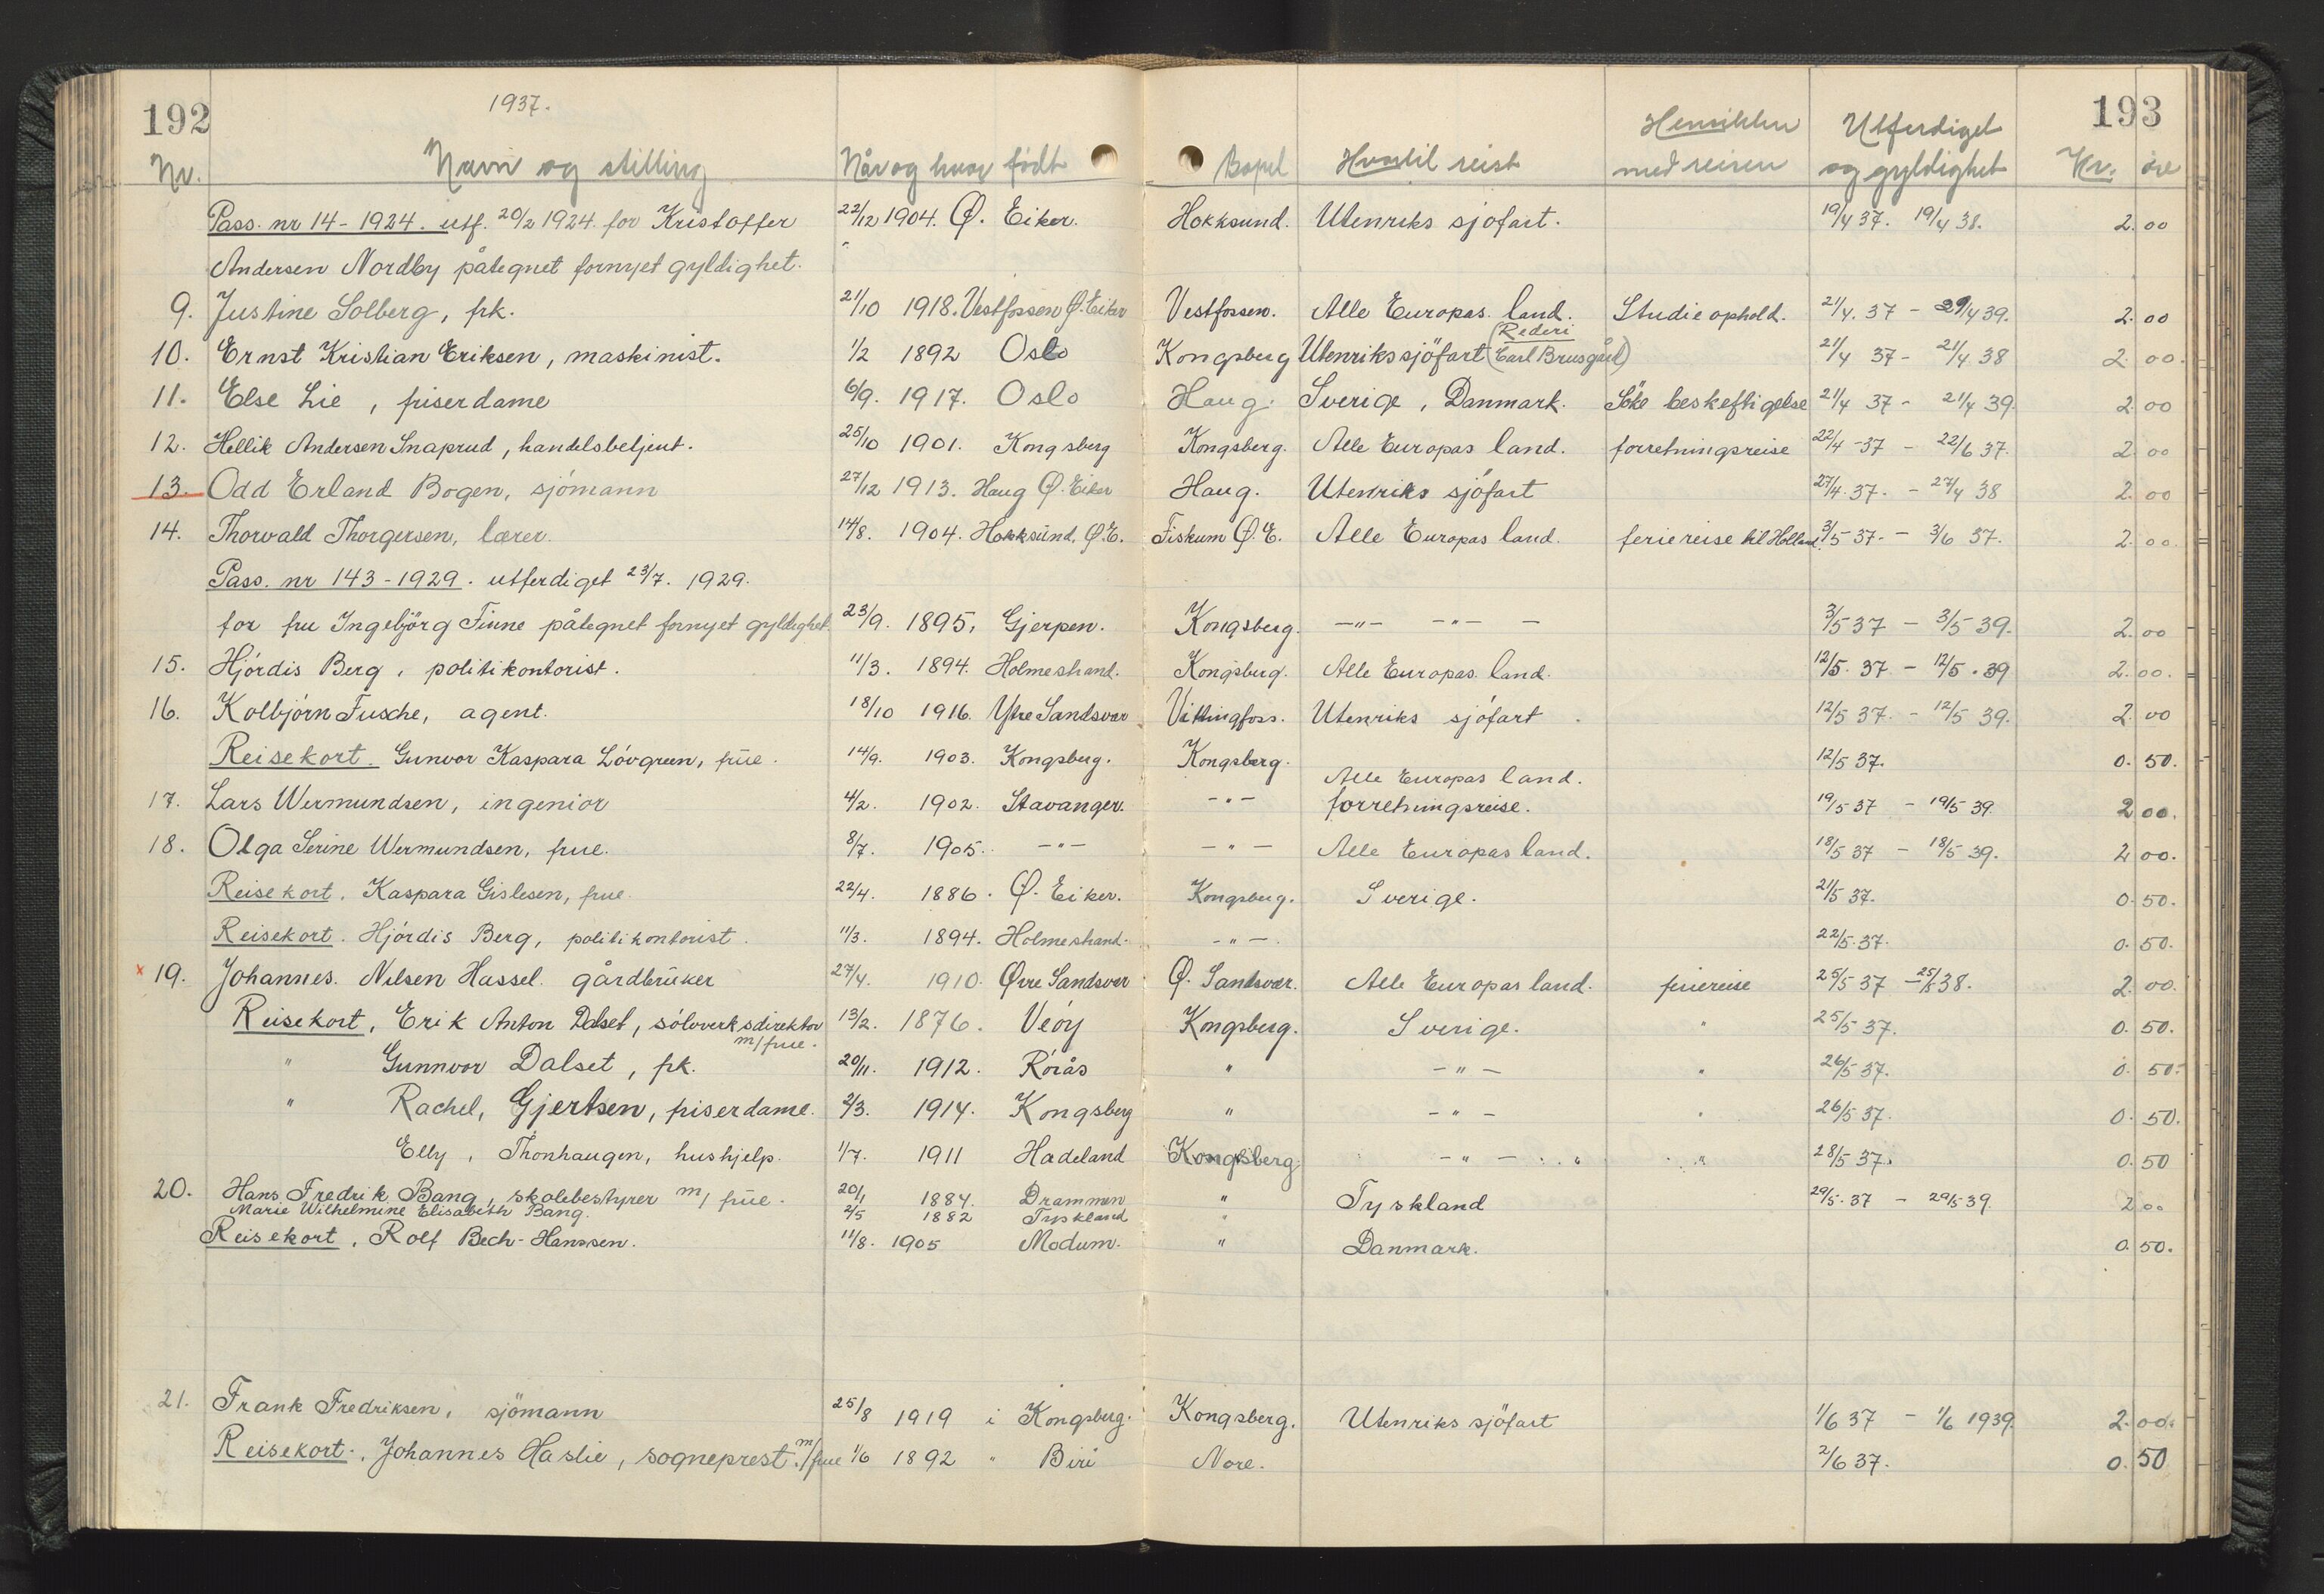 192 1937. 193
Nr. Navn og stilling Når og hvor född Bopel Hvortil reist Hensikten med reisen Utferdiget og gyldighet Kr. öre
Pass. nr 14 - 1924. utf. 20/2 1924. for Kristoffer 22/12 1904. Ø. Eiker. Hokksund. Utenriks sjöfart. 19/4 37. 19/4 38. 2.00
Andersen Nordby påtegnet fornyet gyldighet.
9. Justine Solberg, frk. 21/10 1918. Vestfossen Ø. Eiker Vestfossen. Alle Europas land. Studieophold. 21/4. 37 - 21/4 39. 2.00
10. Ernst Kristian Eriksen, maskinist. 1/2 1892 Oslo Kongsberg Utenriks sjöfart (Rederi Carl Brusgård) 21/4 37 - 21/4 38 2.00.
11. Else Lie, friserdame 6/9. 1917. Oslo Haug. Sverige, Danmark. Söke beskeftigelse 21/4 37 - 21/4 39. 2.00
12. Hellik Andersen Snaprud, handelsbetjent. 25/10 1901. Kongsberg Kongsberg. Alle Europas land. forretningsreise 22/4 -37 - 22/6 37. 2.00
13. Odd Erland Bogen, sjömann 27/12 1913. Haug Ø. Eiker Haug. Utenriks sjöfart 27/4. 37. - 27/4 38 2.00
14. Thorvald Thorgersen, lærer. 14/8. 1904. Hokksund, Ø.E. Fiskum Ø.E. Alle Europas land. feriereise til Holland 3/5 37. - 3/6 37. 2.00.
Pass. nr 143 - 1929. utferdiget 23/7. 1929.
for fru Ingebjörg Tinne påtegnet fornyet gyldighet. 23/9. 1895, Gjerpen. Kongsberg. -"- -"- - 3/5 37 - 3/5 39. 2.00
15. Hjördis Berg, politikontorist. 11/3. 1894. Holmestrand. Kongsberg. Alle Europas land. 12/5. 37 - 12/5. 39 2.00.
16. Kolbjörn Fusche, agent. 18/10 1916. Ytre Sandsvær Vittingfoss. Utenriks sjöfart. 12/5 37. - 12/5 39. 2.00
Reisekort. Gunvor Kaspara Lövgreen, frue. 14/9. 1903. Kongsberg. Kongsberg. 12/5 37. 0.50.
Alle Europas land.
17. Lars Wermundsen, ingeniör 4/2. 1902. Stavanger. -"- forretningsreise. 19/5 37 - 19/5 39. 2 00.
18. Olga Serine Wermundsen, frue. 8/7. 1905. -"- -"- Alle Europas land. 18/5 37 - 18/5 39. 2 00.
Reisekort. Kaspara Gislesen, frue. 22/4. 1886. Ø. Eiker. Kongsberg. Sverige. 21/5 37. 0.50.
Reisekort. Hjördis Berg, politikontorist. 11/3. 1894. Holmestrand. -"-. 22/5. 37. 0.50.
x 19. Johannes. Nilsen Hassel. gårdbruker 27/4. 1910. Øvre Sandsver Ø. Sandsvær. Alle Europas land. feriereise 25/5 37 - 25/5 38. 2.00.
Reisekort, Erik Anton Dalset, sölvverksdirektör 13/2. 1876. Veöy Kongsberg. Sverige. " 25/5 37. 0.50.
m/frue.
" Gunnvor Dalset, frk. 20/11. 1912. Rörås " -"- " 26/5 37. 0.50.
" Rachel, Gjertsen, friserdame. 2/3. 1914. Kongsberg " -"- " 26/5 37. 0.50.
Elly, Thonhaugen, hushjelp. 1/7. 1911 Hadeland Kongsberg -"- " " 28/5 37. 0.50
20. Hans Fredrik Bang, skolebestyrer m/ frue. 20/1 1884. Drammen " Tyskland 29/5. 37 - 29/5 39. 2 00
Marie Wilhelmine Elisabeth Bang. 2/5 1882 Tyskland "
Reisekort, Rolf Bech-Hanssen. 11/8. 1905 Modum. " Danmark. 0.50.
21. Frank Fredriksen, sjömann 25/8 1919 i Kongsberg. Kongsberg. Utenriks sjöfart 1/6 37 - 1/6 1939. 2.00.
Reisekort. Johannes Haslie, sogneprest. m/frue 1/6 1892 " Biri Nore. 2/6 37. 0.50